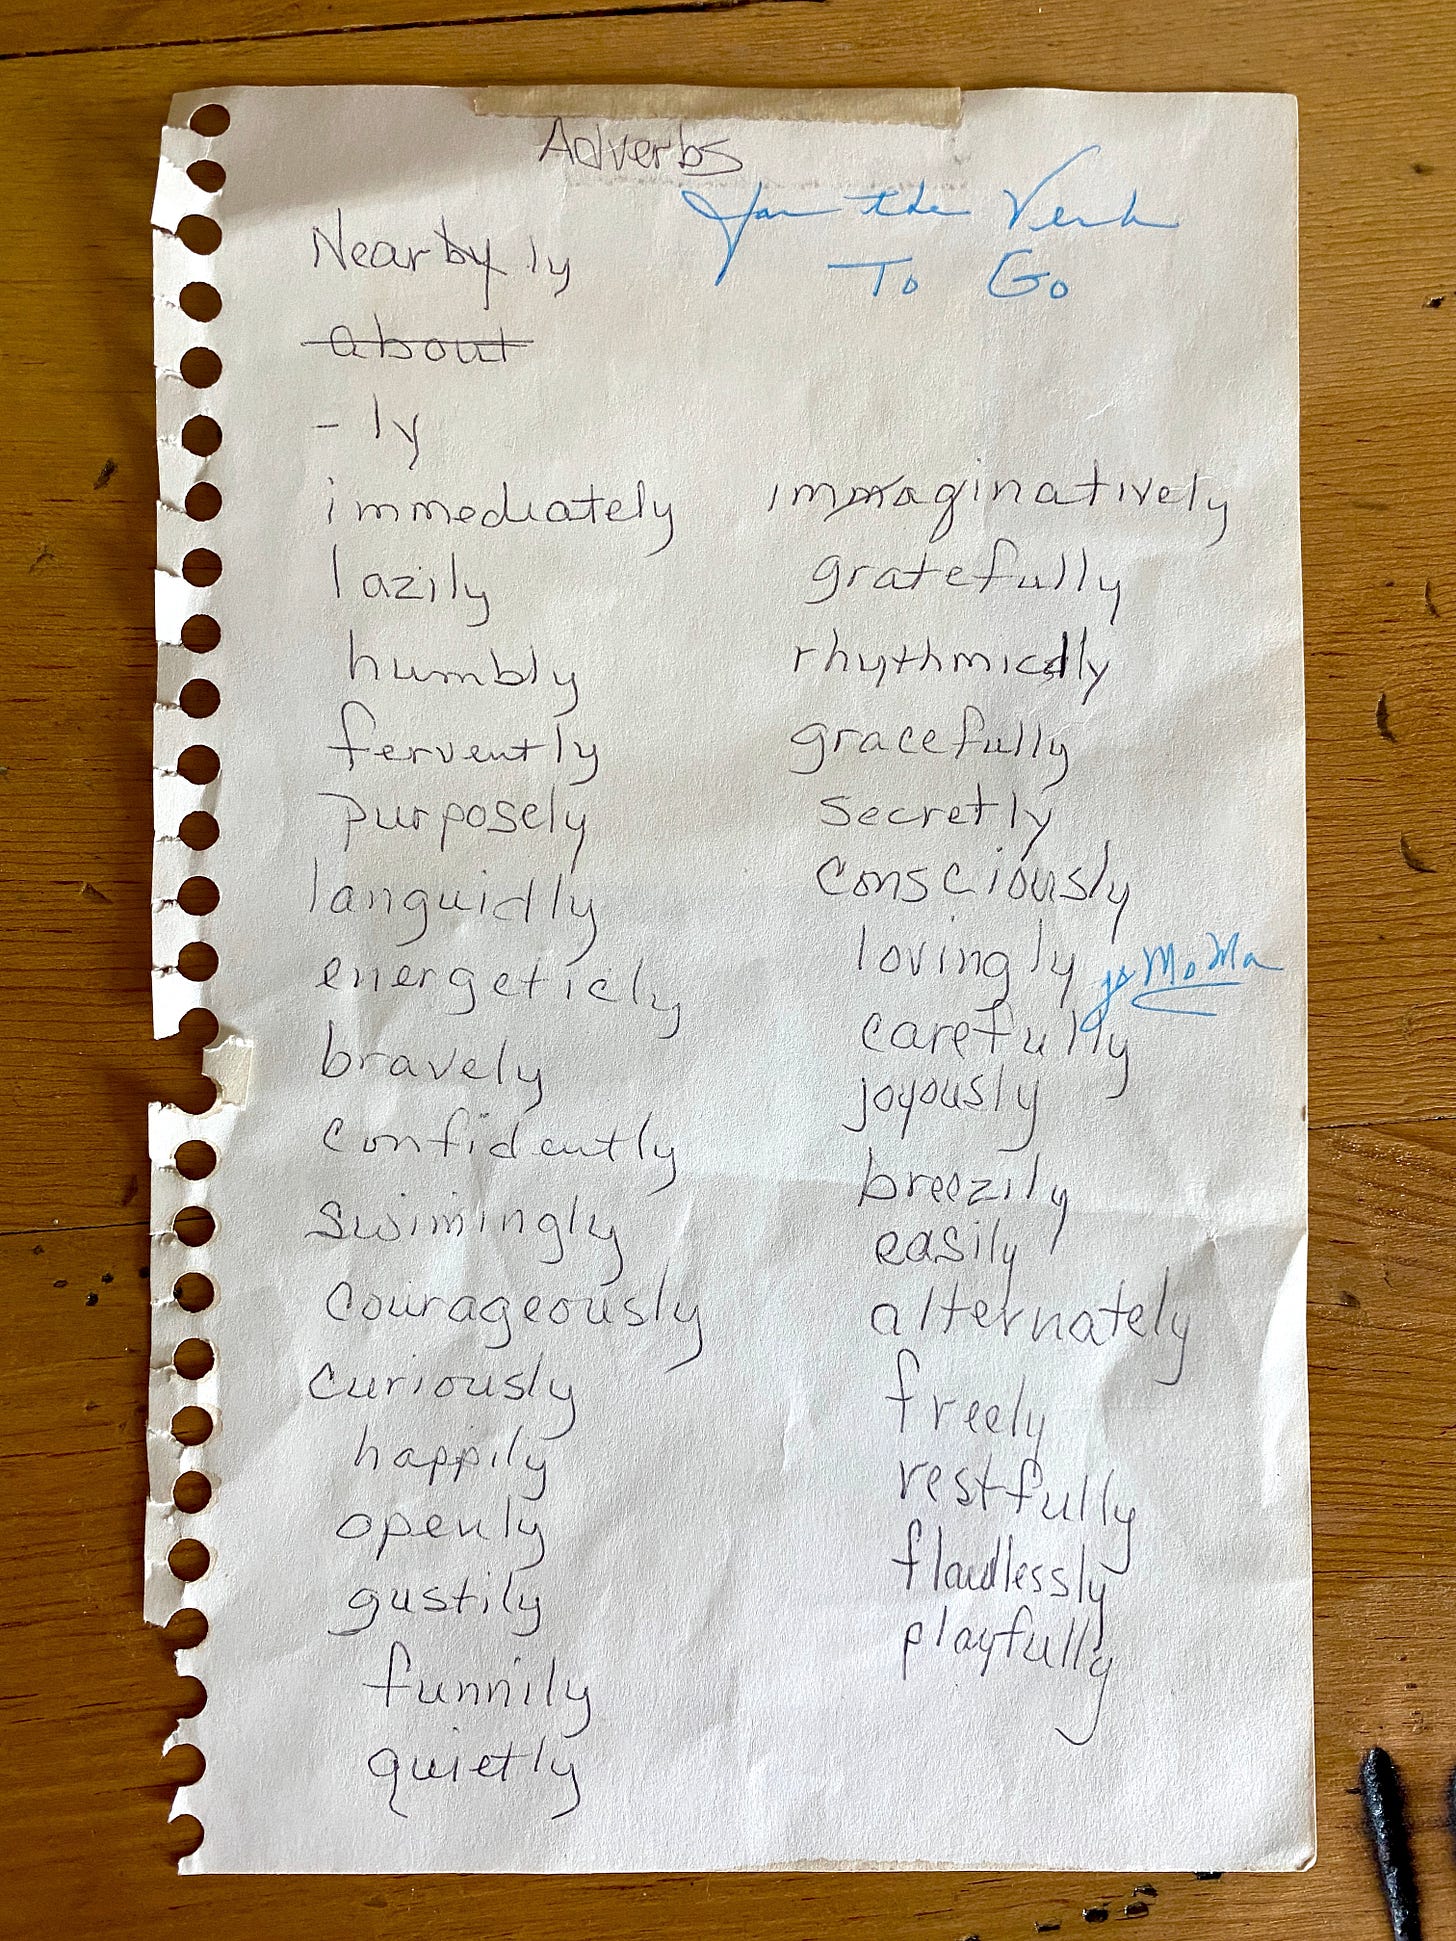 Adverbs
for the Verb
To Go
Nearby ly
about
- ly
immediately
lazily
humbly
fervently
purposely
languidly
energeticly
bravely
confidently
swimingly
courageously
curiously
happily
openly
gustily
funnily
quietly
immaginatively
gratefully
rhythmically
gracefully
secretly
consciously
lovingly
MoMa
carefully
joyously
breezily
easily
alternately
freely
restfully
flawlessly
playfully